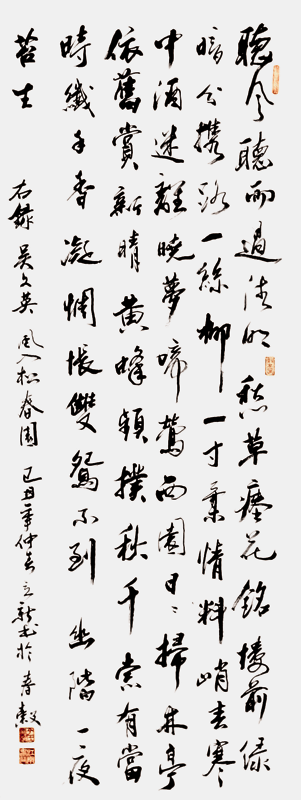 聽風聽雨過清明愁草瘞花銘樓前綠
暗分攜路一絲柳一寸柔情料峭春寒
中酒迷離曉夢啼鶯西園日々掃林亭
依舊賞新晴黃蜂頻撲秋千索有當
時纖手香凝惆悵雙鴛不到幽階一夜
苔生
右錄吳文英風入松春園己丑年仲春立新書於春